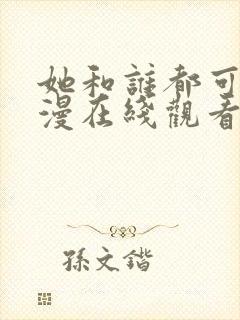 她和誰都可
漫在綫觀看
孫文鍇